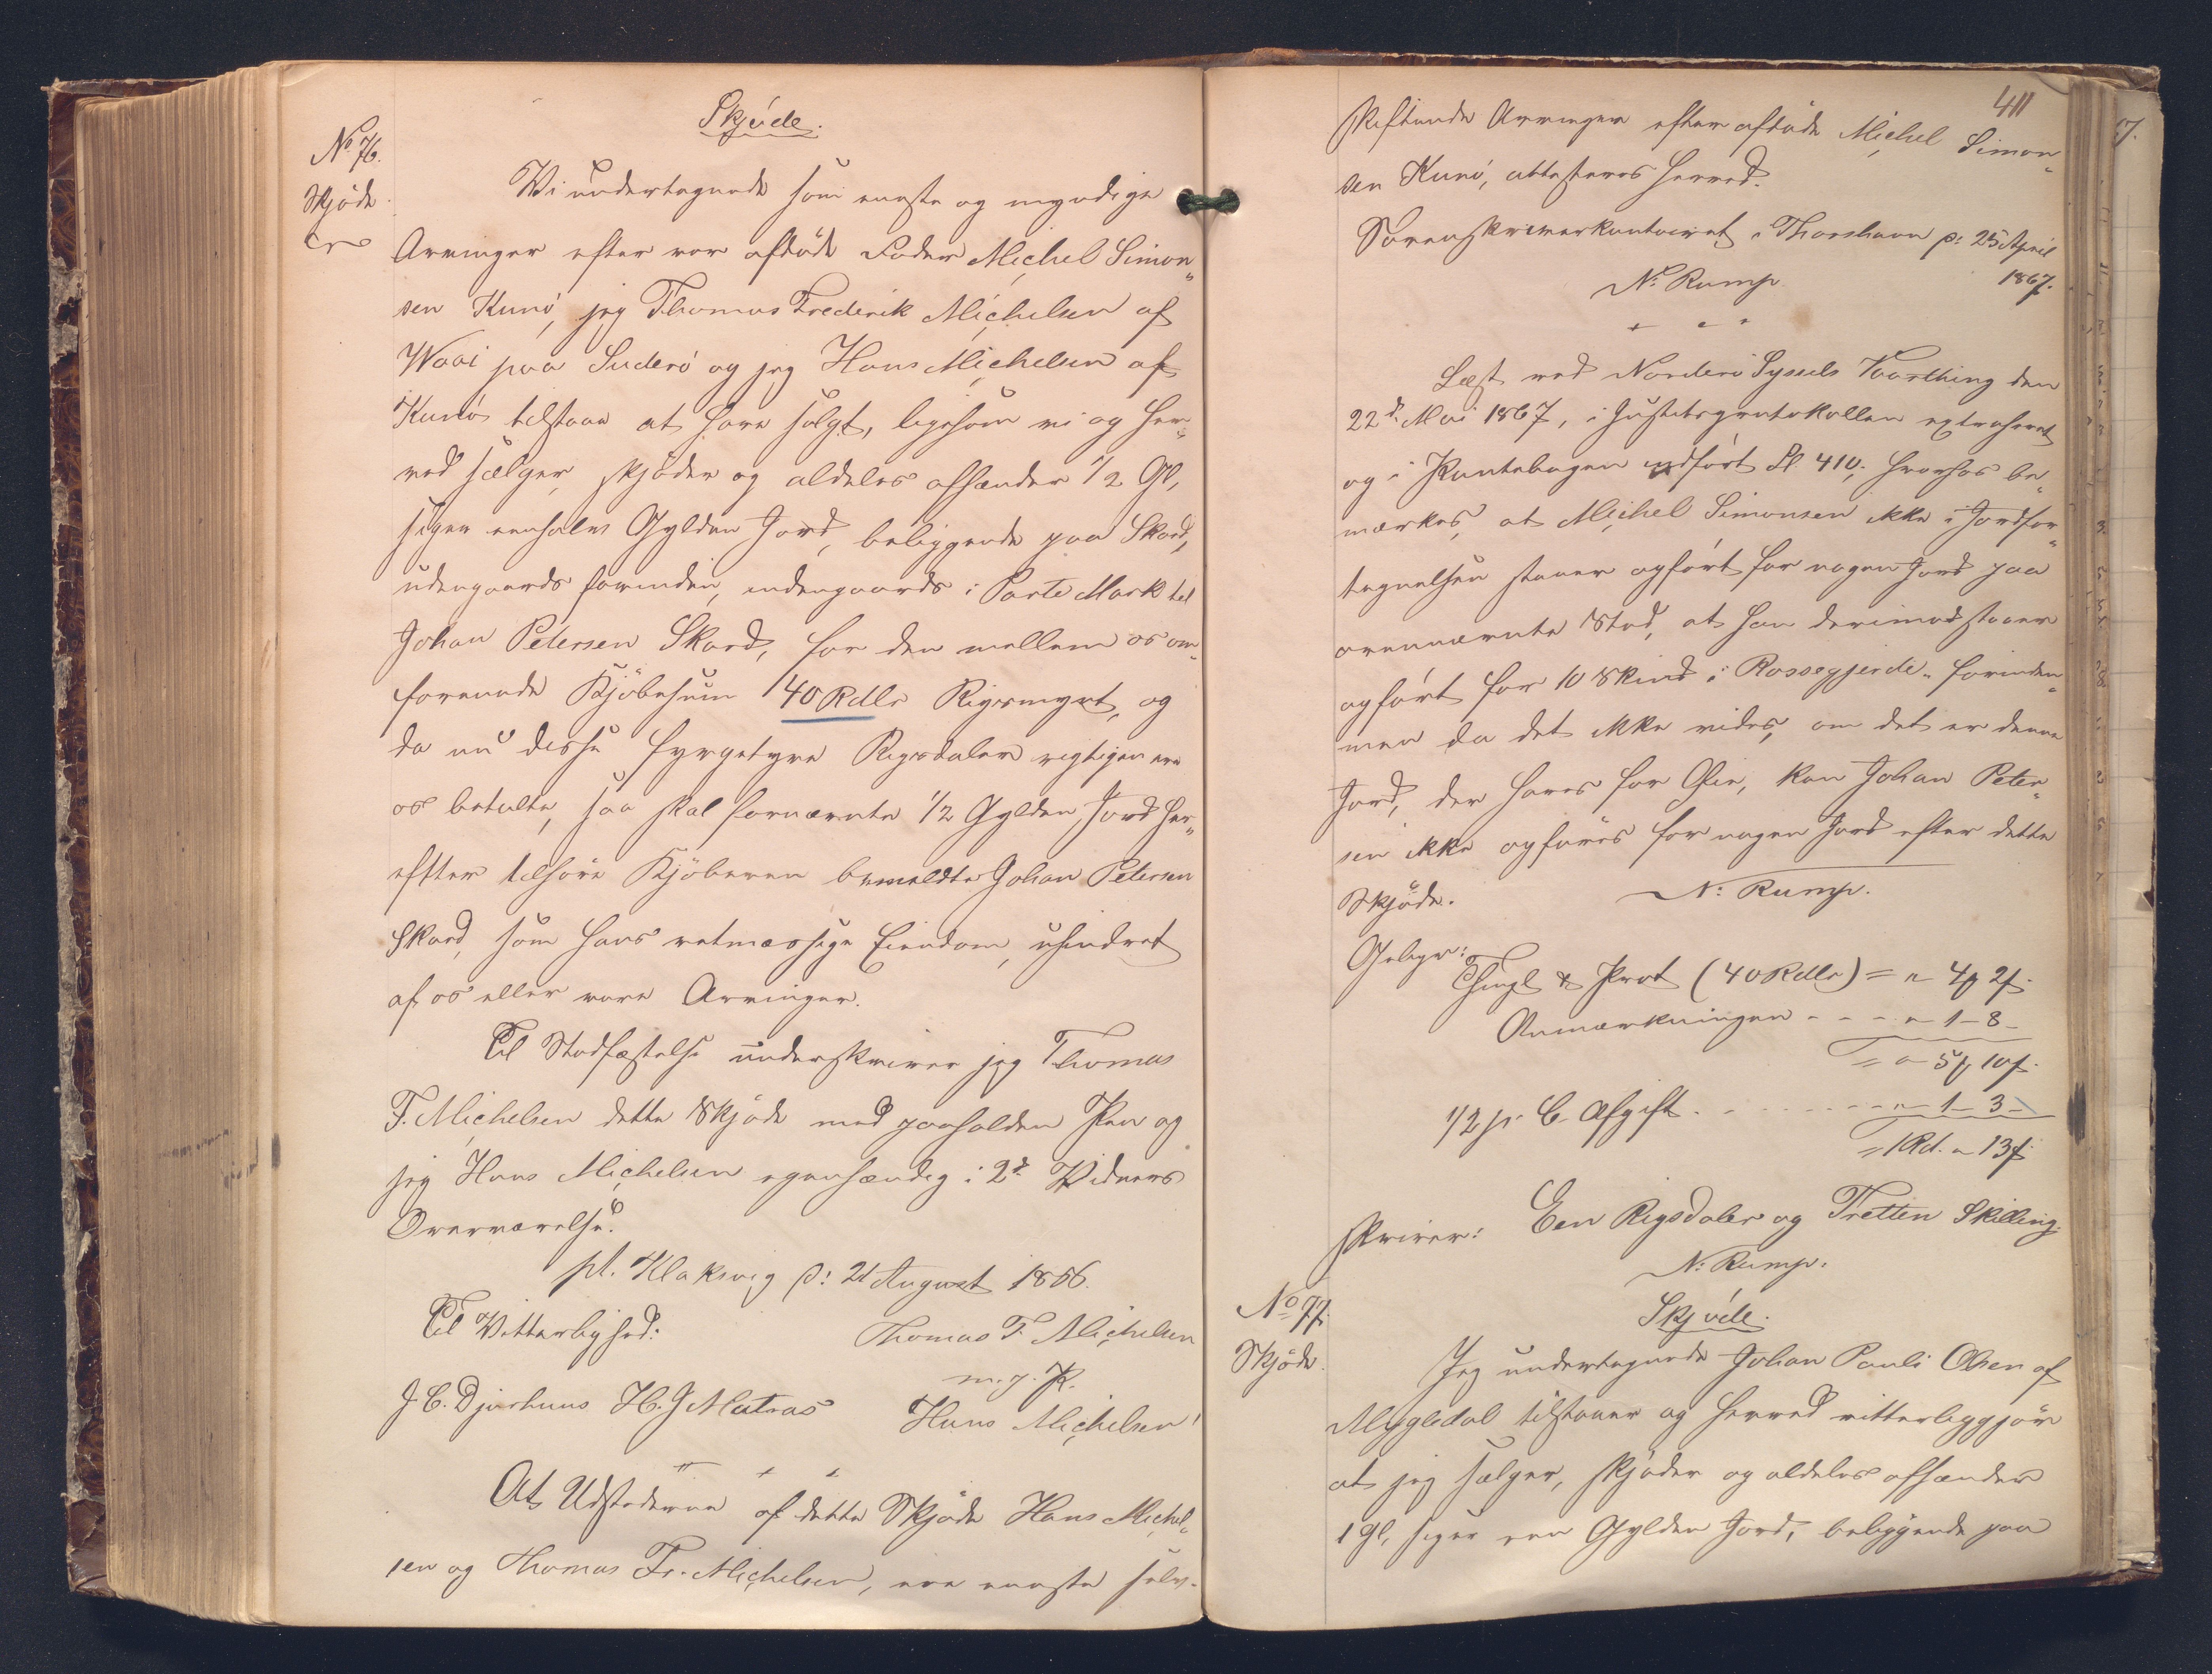 Skjöde.
No 76.
Skjöde
Vi undertegnede som eneste og myndige
Arvinger efter vor afdöde Fader Michel Simon„
sen Kunö, jeg Thomas Frederik Michelsen af
Waai paa Suderö og jeg Hans Michelsen af
Kunö tilstaae at have solgt, ligesom vi og her„
ved sælger, skjöder og aldeles afhænder 1/2 Gl,
siger eenhalv Gylden Jord, beliggende paa Skard,
udengaards forinden, indengaards i Parte Mark til
Johan Petersen Skard, for den mellem os om„
forenede Kjöbesum 40 Rdlr Rigsmynt, og
da nu disse fyrgetyve Rigsdaler rigtigen ere
os betalte, saa skal fornævnte 1/2 Gylden Jord her„
efter tilhöre Kjöberen bemeldte Johan Petersen
Skard, som hans retmæssige Eiendom, uhindret
af os eller vore Arvinger.
Til Stadfæstelse underskriver jeg Thomas
F. Michelsen dette Skjöde med paaholden Pen og
jeg Hans Michelsen egenhændig i 2de Vidners
Overværelse.
pt. Klaksvig d: 21 August 1866.
Til Vitterlighed: Thomas F. Michelsen
m. p. P.
J. C. Djurhuus H. J Matras Hans Michelsen
At Udstederne af dette Skjöde Hans Michel„
sen og Thomas Fr. Michelsen, ere eneste selv-
411
skiftende Arvinger efter afdöde Michel Simon„
sen Kunö, attesteres herved.
Sorenskriverkontoiret i Thorshavn d: 25 April
1867.
N. Rump
Læst ved Norderö Syssels Vaarthing den
22de Mai 1867, i Justitsprotokollen extraheret
og i Pantebogen indfört Fl. 410; hvorhos be„
mærkes, at Michel Simonsen ikke i Jordfor„
tegnelsen staaer opfört for nogen Jord paa
ovennævnte Sted, at han derimod staaer
opfört for 10 Skind i Rossegjerde forinden„
men da det ikke vides, om det er denne
Jord, der haves for Øie, kan Johan Peter„
sen ikke opföres for nogen Jord efter dette
Skjöde. N. Rump.
Gebyr:
Thingl & Prot (40 Rdlr) = " 4 2
Anmærkningen - - - " 1 - 8 -
= " 5 10
1/2 p. C. Afgift - - - " 1 - 3 -
= 1 Rd. " 13
skriver: Een Rigsdaler og Tretten Skilling.
N. Rump.
No 77.
Skjöde.
Skjöde.
Jeg undertegnede Johan Pauli Olsen af
Mygledal tilstaaer og herved vitterliggjör
at jeg sælger, skjöder og aldeles afhænder
1 Gl, siger een Gylden Jord, beliggende paa